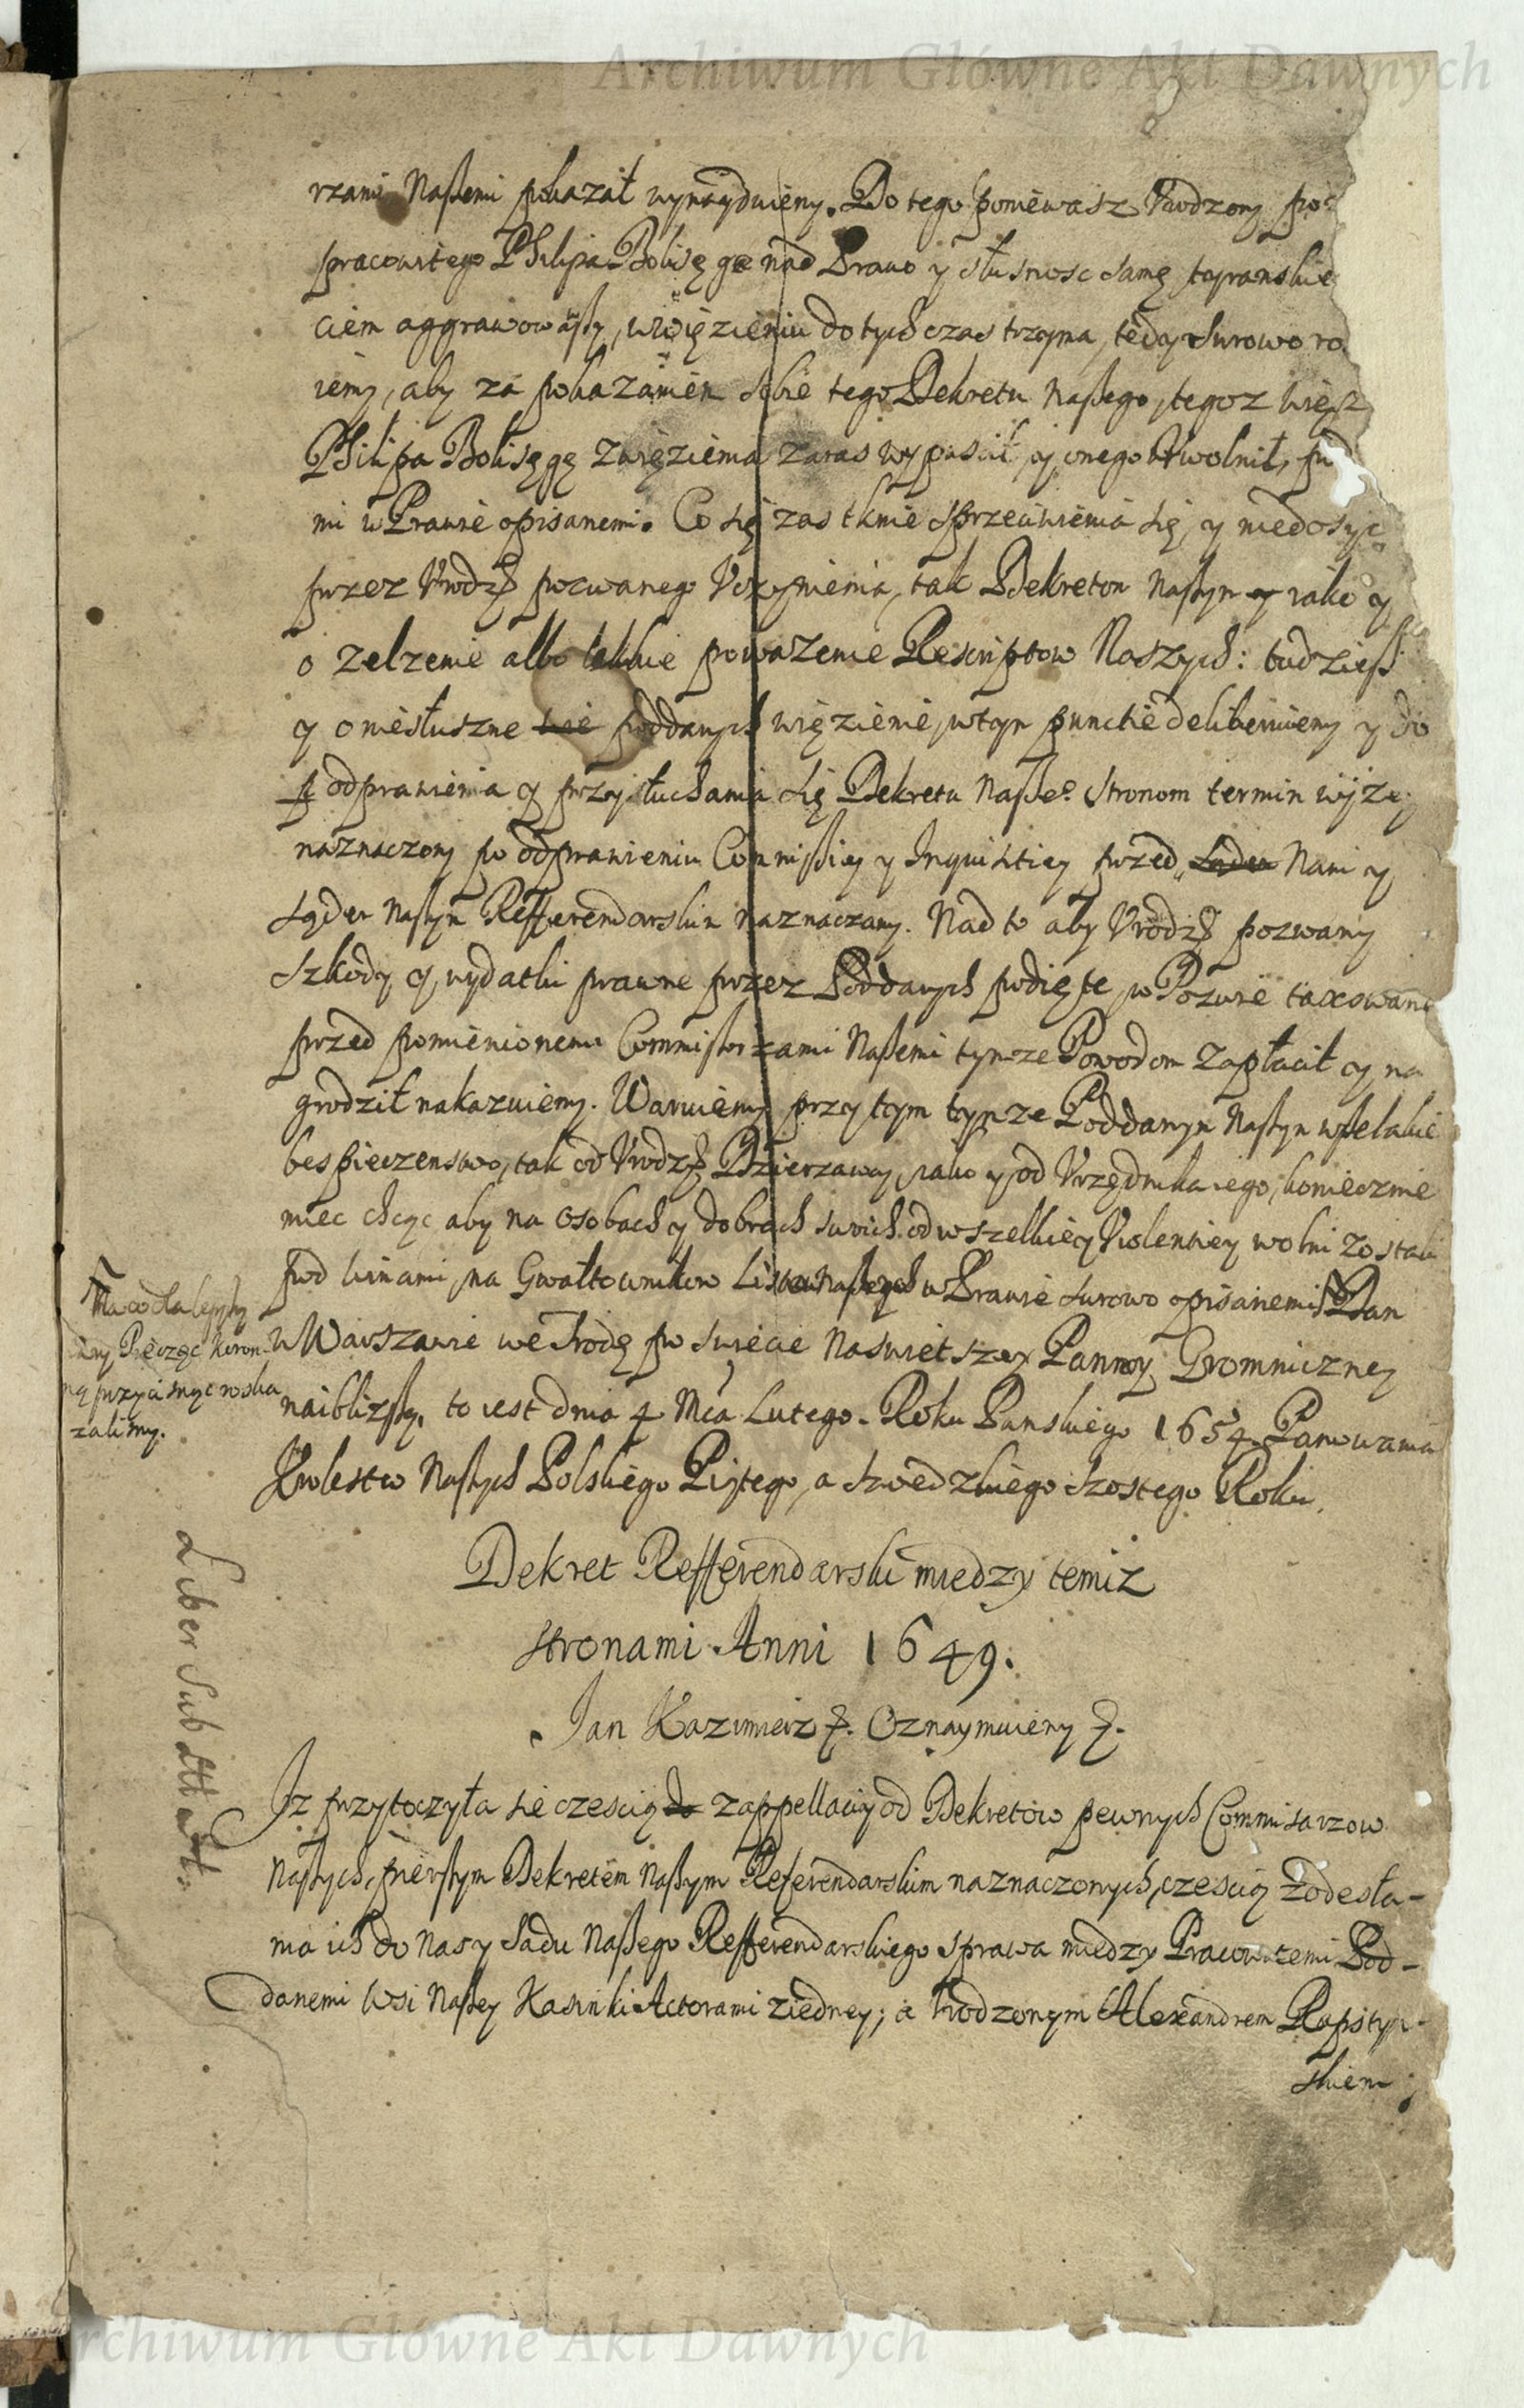 Archiwum Główne Akt Dawnych
rzami Naßemi pokazał wynayduiemy. Do tego ponieważ Vrodzony poz
pracowitego Philipa Bolisęgę nad Prawo y słusnosc samę tyranskie
ciem aggrawowaßy, w więzieniu dotychczas trzyma, tedy surowo ro
iemy, aby za pokazaniem sobie tego Dekretu Naßego, tegoz więz
Philipa Bolisęgę z więzienia zaras wypuscił, y onego Uwolnił, pod
mi w Prawie opisanemi. Co się zas tknie sprzeciwienia się, y niedosyc
przez Vrodz pozwanego Vczynienia, tak Dekretom Naßym iako y
o zelzenie albo lekkie powazenie Rescriptow Naszych: tudzieß
y o niesłuszne poddanych więzienie, w tym punctie deliberuiemy y do
odprawienia y przysłuchania się Dekretu Naße° Stronom termin wyze
naznaczony po odprawieniu Commißiey y Inquisitiey przed Nami y
Sądem Naßym Refferendarskim naznaczamy. Nad to aby Vrodz pozwany
szkody y wydatki prawne przez Poddanych podięte, w Pozwie taxowane
przed pomienionemi Commißarzami Naßemi tymze Powodom zapłacił y na
grodził nakazuiemy. Waruiemy przy tym tymze Poddanym Naßym wßelakie
bespieczenstwo, tak od Vrodz Dzierzawcy, iako y od Vrzędnika iego, koniecznie
miec chcąc aby na osobach y dobrach swoich od wszelkiey Violentiey wolni zostali
pod winami, na Gwałtownikow Listow Naßych w Prawie surowo opisanemi Dan
w Warszawie we Srodę po swięcie Naswietszey Panny Gromniczney
naibliższą, to iest dnia 4 Mca Lutego. Roku Panskiego 1654 Panowania
Krolestw Naßych Polskiego Piątego, a Szwedzkiego Szostego Roku.
Na co dla lepszey
wiary Pieczęc koron
ną przycisnąc roska
zalismy.
Dekret Refferendarski miedzy temiz
stronami Anni 1649.
Jan Kazimierz. Oznaymuiemy
Liber Sub Litt
Iz przytoczyła sie czescią z appellacyi od Dekretów pewnych Commisarzow
Naßych, pierßym Dekretem Naßym Referendarskim naznaczonych, czescią z odesła-
nia ich do Nas y Sadu Naßego Refferendarskiego sprawa miedzy Pracowitemi Pod-
danemi Wsi Naßey Kasinki Actorami z iedney; a Urodzonym Alexandrem Rapstyn-
skiem;
Archiwum Główne Akt Dawnych